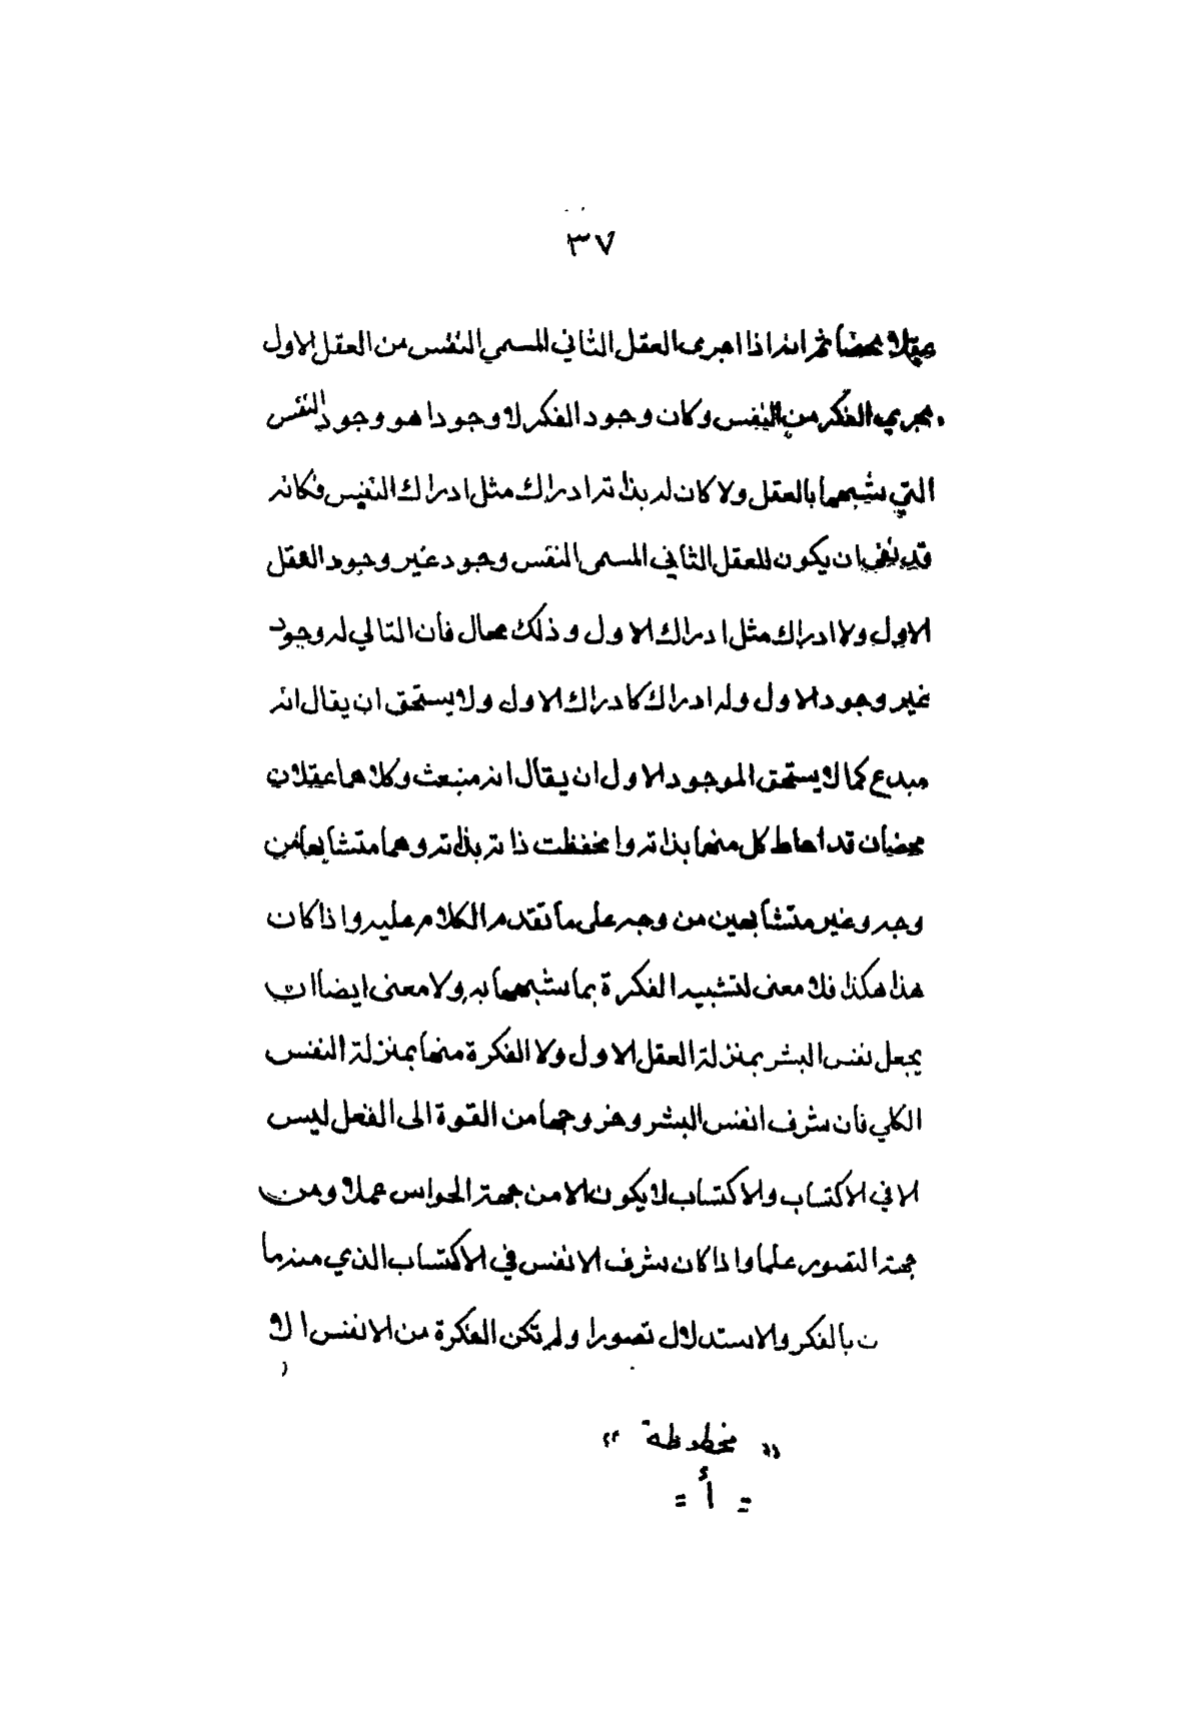 ٣٧
عقلا محضا ثم انه اذا اجرى العقل الثاني المسمي النفس من العقل الاول
مجري الفكر من النفس وكان وجود الفكر لا وجودا هو وجود النفس
التي شبهها بالعقل ولا كان له بذاته ادراك مثل ادراك النفس فكانه
قد نفى ان يكون للعقل الثاني المسمى النفس وجود غير وجود العقل
الاول ولا ادراك مثل ادراك الاول وذلك محال فأن التالي له وجود
غير وجود الاول وله ادراك كادراك الاول ولا يستحق ان يقال انه
مبدع كما لا يستحق الموجود الاول ان يقال انه منبعث وكلاهما عقلان
محضان قد احاط كل منهما بذاته وانحفظت ذاته بذاته وهما متشابهان من
وجه وغير متشابهين من وجه على ما تقدم الكلام عليه واذا كان
هذا هكذا فلا معنى لتشبيه الفكرة بما شبهها به ولا معنى ايضا ان
يجعل نفس البشر بمنزلة العقل الاول ولا الفكرة منها بمنزلة النفس
الكلي فأن شرف انفس البشر وخروجها من القوة الى الفعل ليس
الا في الاكتساب والاكتساب لا يكون الا من جهة الحواس عملا ومن
جهة التصور علما واذا كان شرف الانفس في الاكتساب الذي منه ما
ن بالفكر والاستدلال تصورا ولم تكن الفكرة من الانفس الا
« مخطوطة »
= أ =